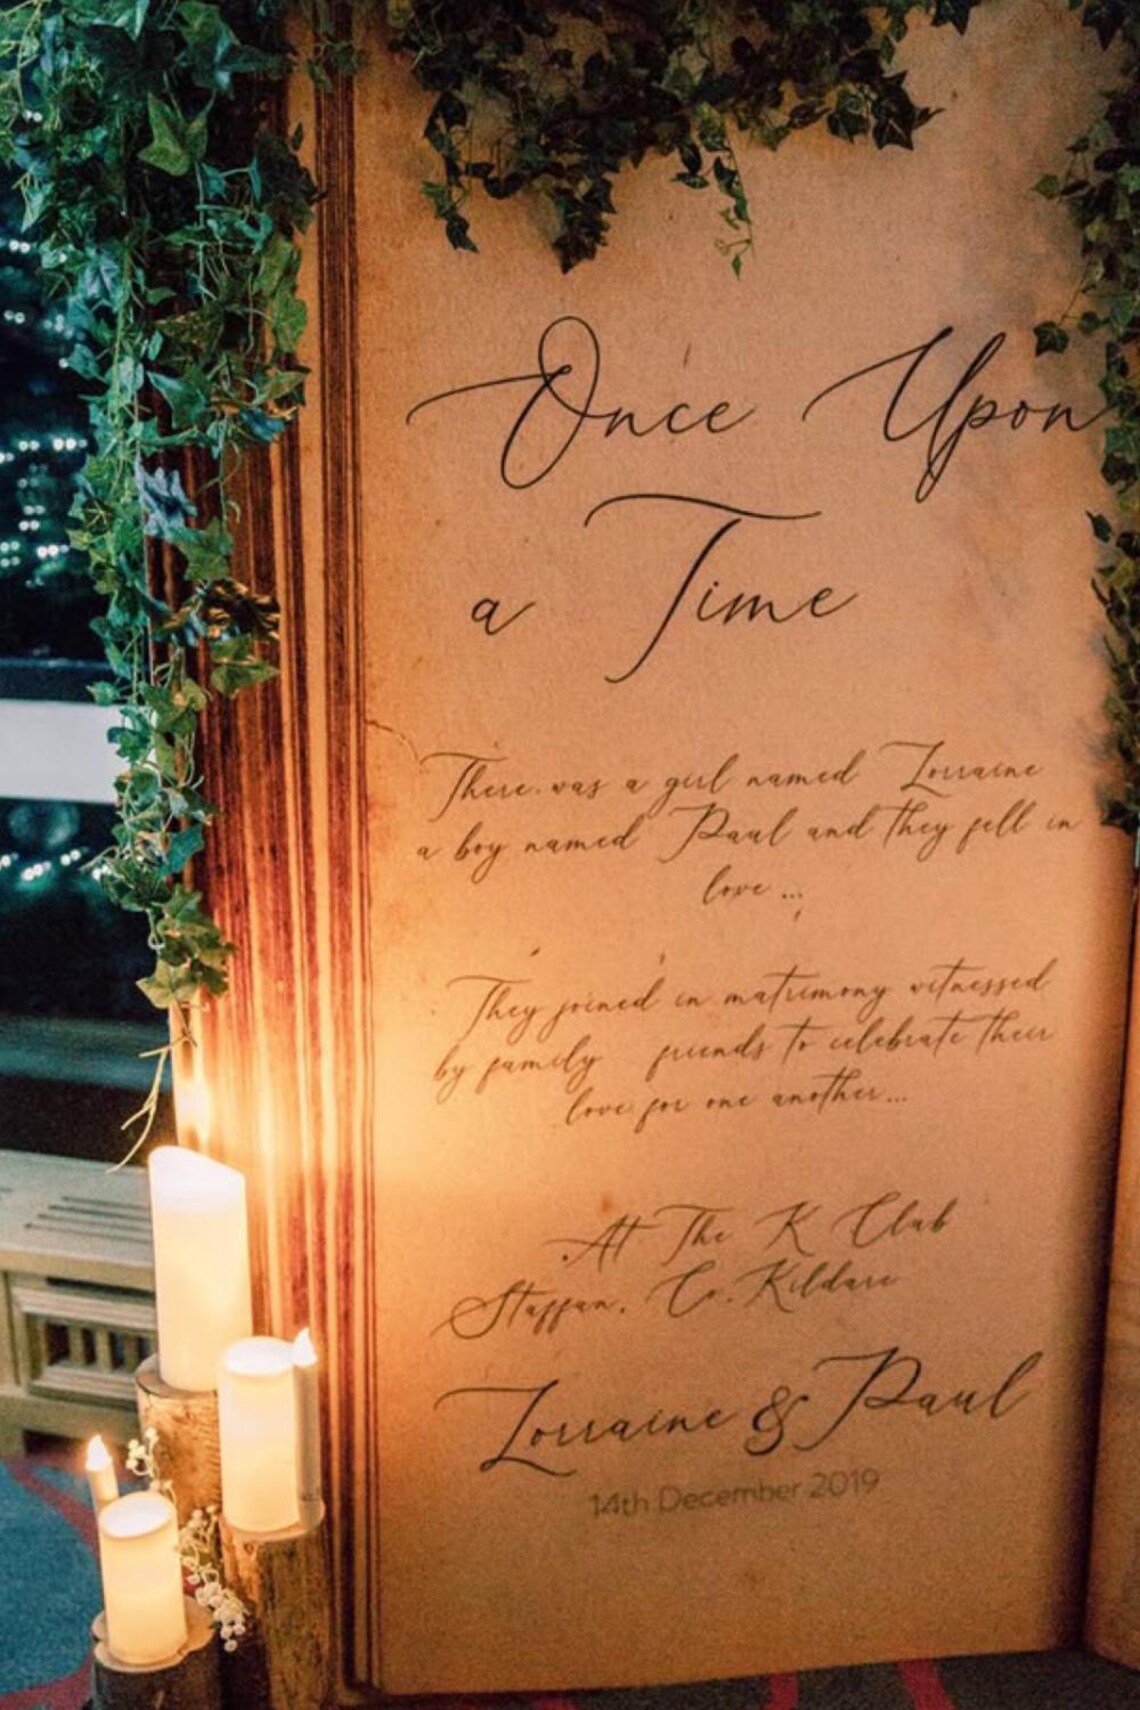 Once Upon
a Time
There was a girl named Lorraine
a boy named Paul and they fell in
love ...
They joined in matrimony witnessed
by family friends to celebrate their
love for one another...
At The K Club
Staffan, Co. Kildare
Lorraine & Paul
14th December 2019